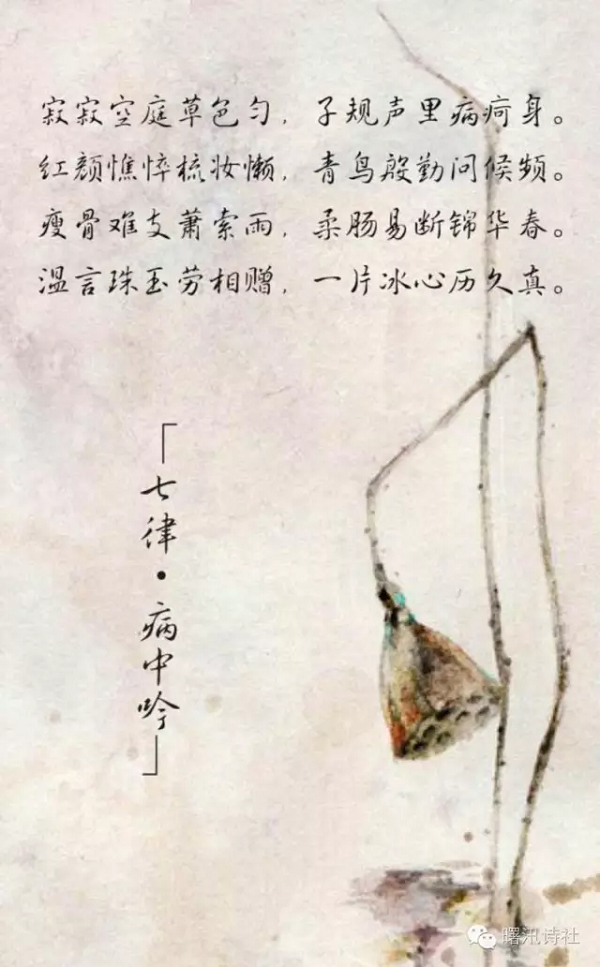 寂寂空庭草色匀，子规声里病疴身。
红颜憔悴梳妆懒，青鸟殷勤问候频。
瘦骨难支萧索雨，柔肠易断锦华春。
温言珠玉劳相赠，一片冰心历久真。
「七律·病中吟」
曙汛诗社